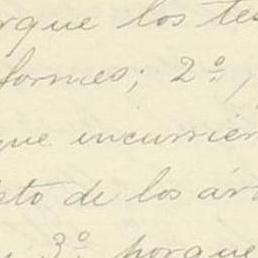 rque los tes
formes; 2º,
que incurrier
sto de los ár
y 3º porque